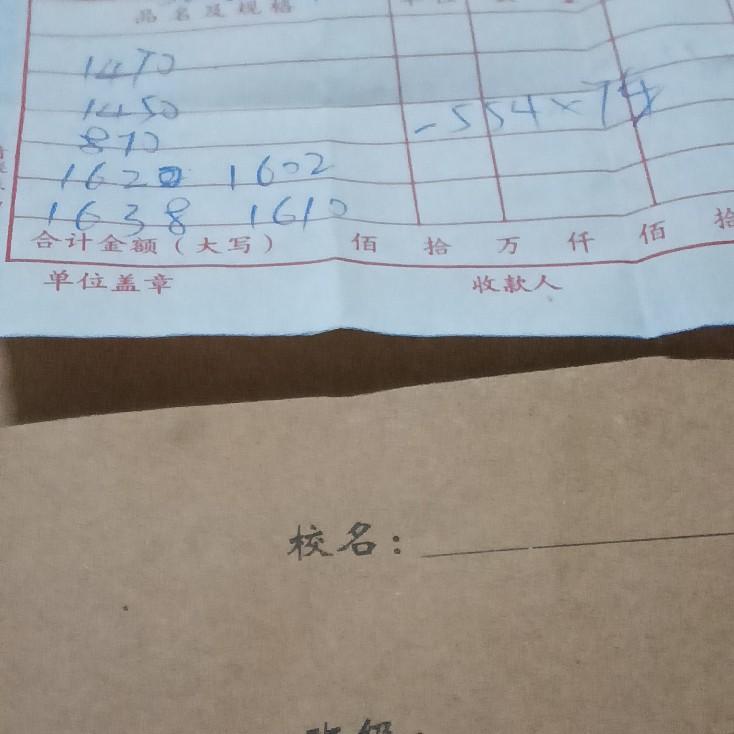 品名及规格
1470
1450
870
-554×74
1620 1602
1638 1610
合计金额（大写） 佰 拾 万 仟 佰 拾
单位盖章 收款人
校名：
班级：